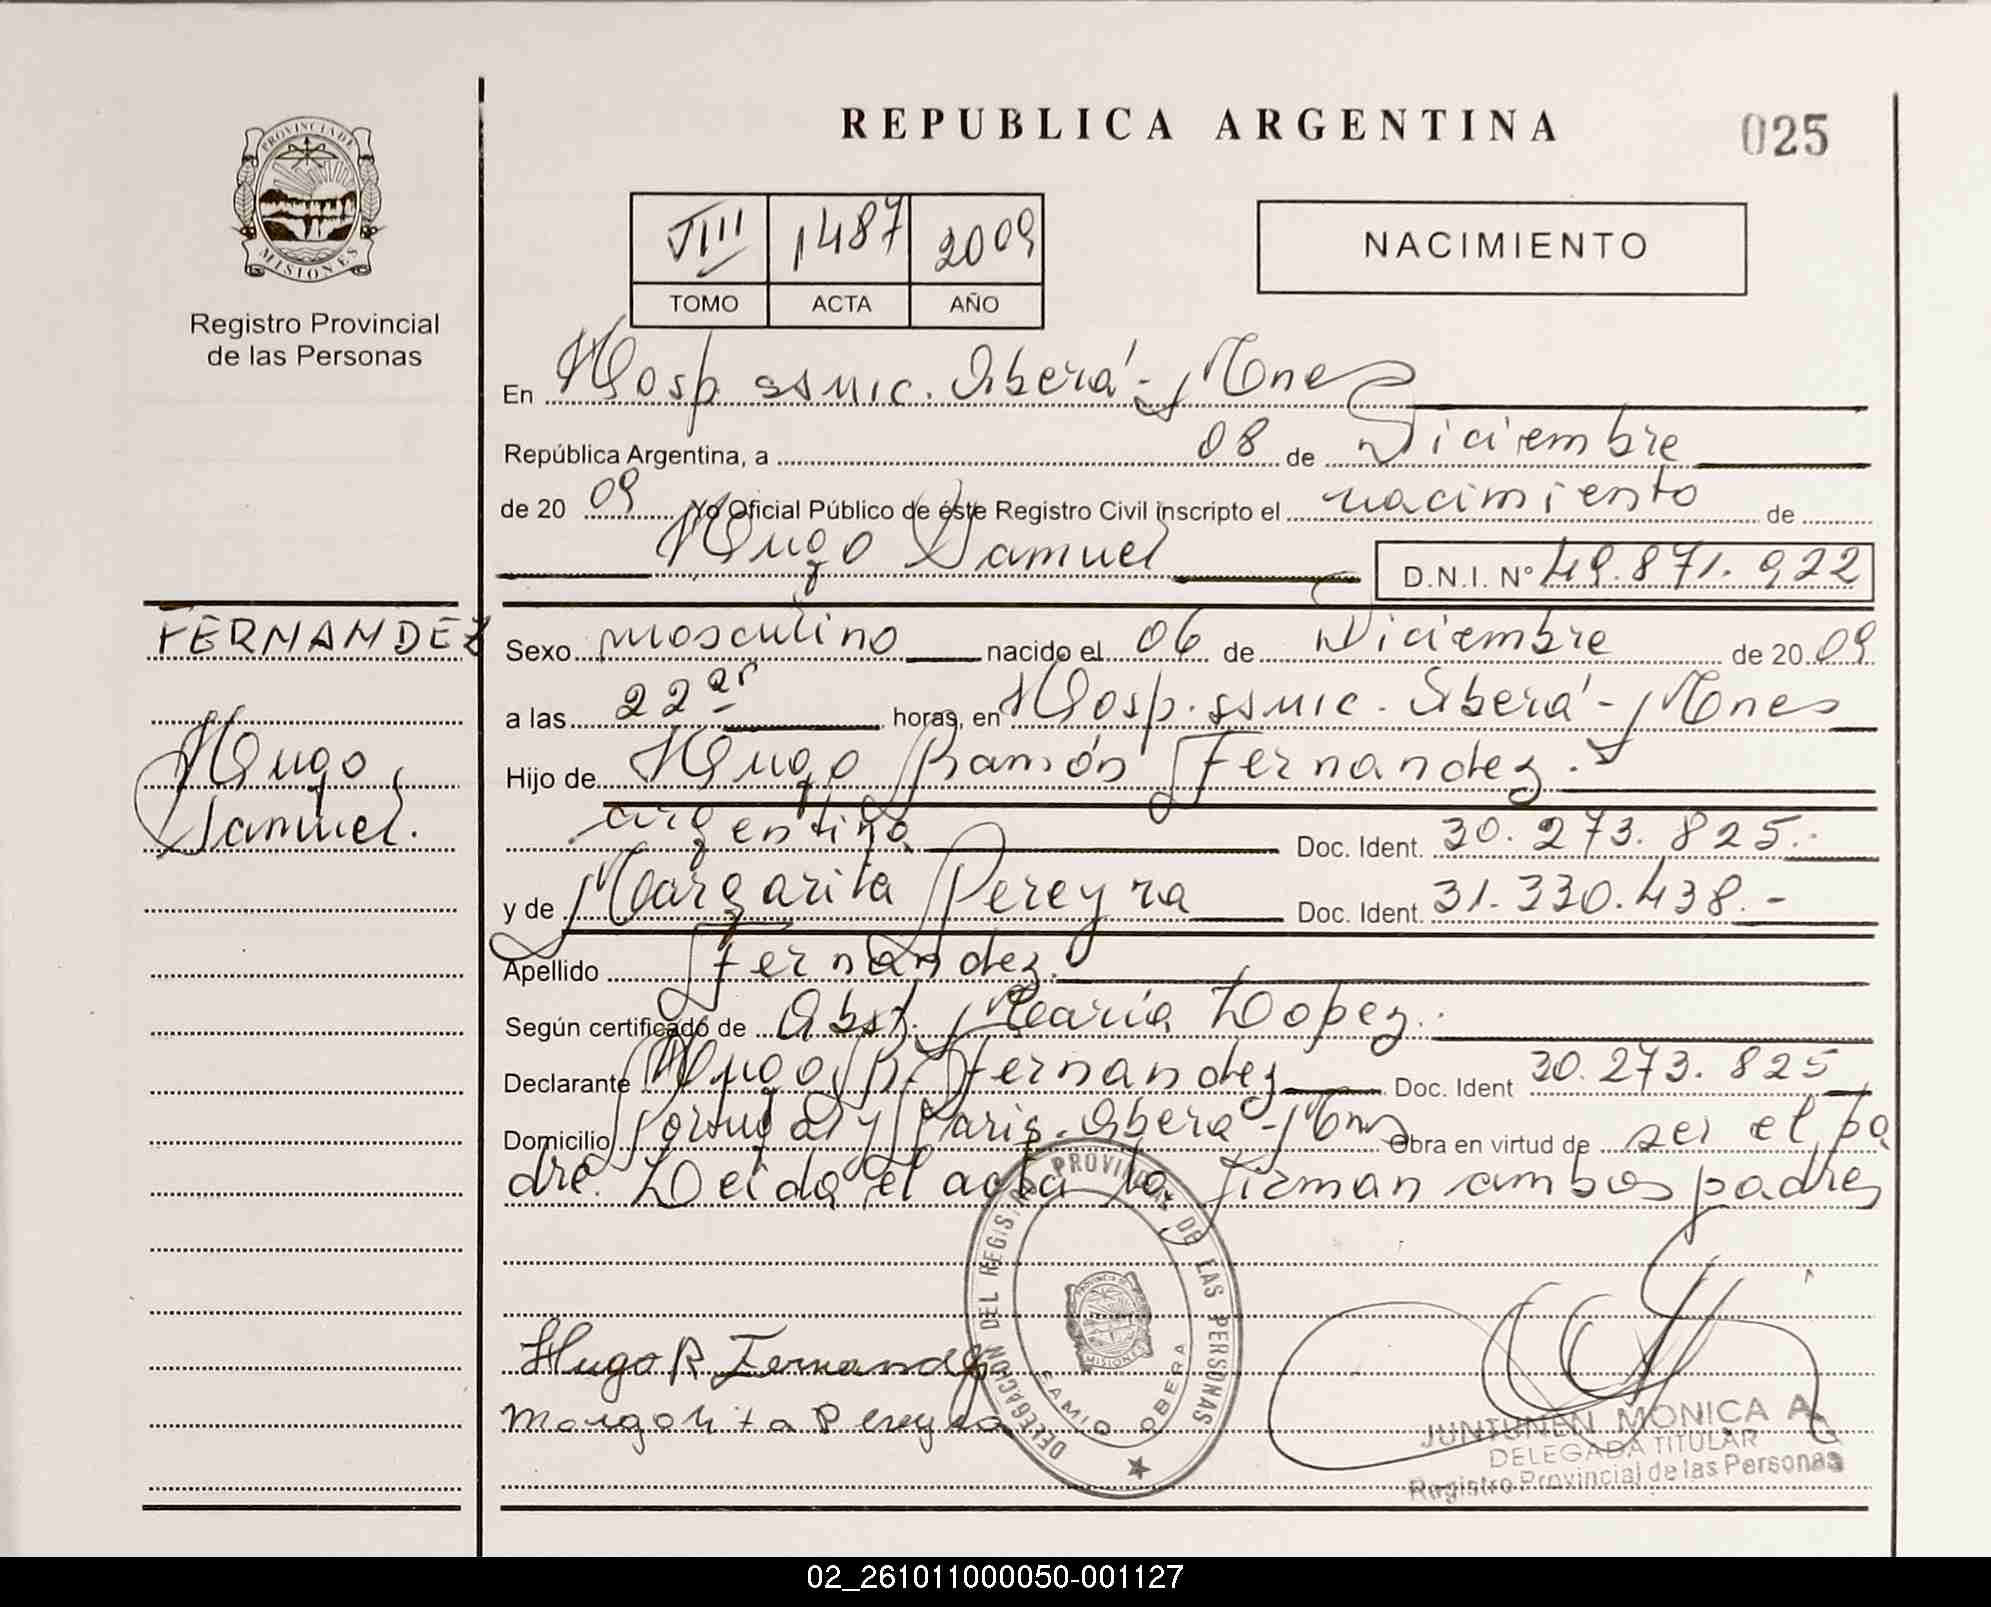 REPUBLICA ARGENTINA
025
PROVINCIA DE
MISIONES
Registro Provincial
de las Personas
VIII 1487 2009
TOMO ACTA AÑO
NACIMIENTO
En Hosp. ssmic. Oberá - Mnes
República Argentina, a 08 de Diciembre
de 20 09 Yo Oficial Público de éste Registro Civil inscripto el nacimiento de
Hugo Samuel D.N.I. Nº 49.871.922
FERNANDEZ
Hugo
Samuel.
Sexo masculino nacido el 06 de Diciembre de 20 09
a las 22 horas, en Hosp. ssmic. Oberá - Mnes
Hijo de Hugo Ramón Fernandez.
argentina Doc. Ident. 30.273.825.-
y de Margarita Pereyra Doc. Ident. 31.330.438.-
Apellido Fernandez.
Según certificado de Obst. María Lopez.
Declarante Hugo R. Fernandez Doc. Ident 30.273.825
Domicilio Portugal y Paris. Oberá - Mnes Obra en virtud de ser el pa
dre. Leida el acta la firman ambos padres
Hugo R Fernandez
Margarita Pereyra
DELEGACION DEL REGISTRO PROVINCIAL DE LAS PERSONAS
PROVINCIA DE
MISIONES
SAMIC OBERA
JUNTUNEN MONICA A.
DELEGADA TITULAR
Registro Provincial de las Personas
02_261011000050-001127